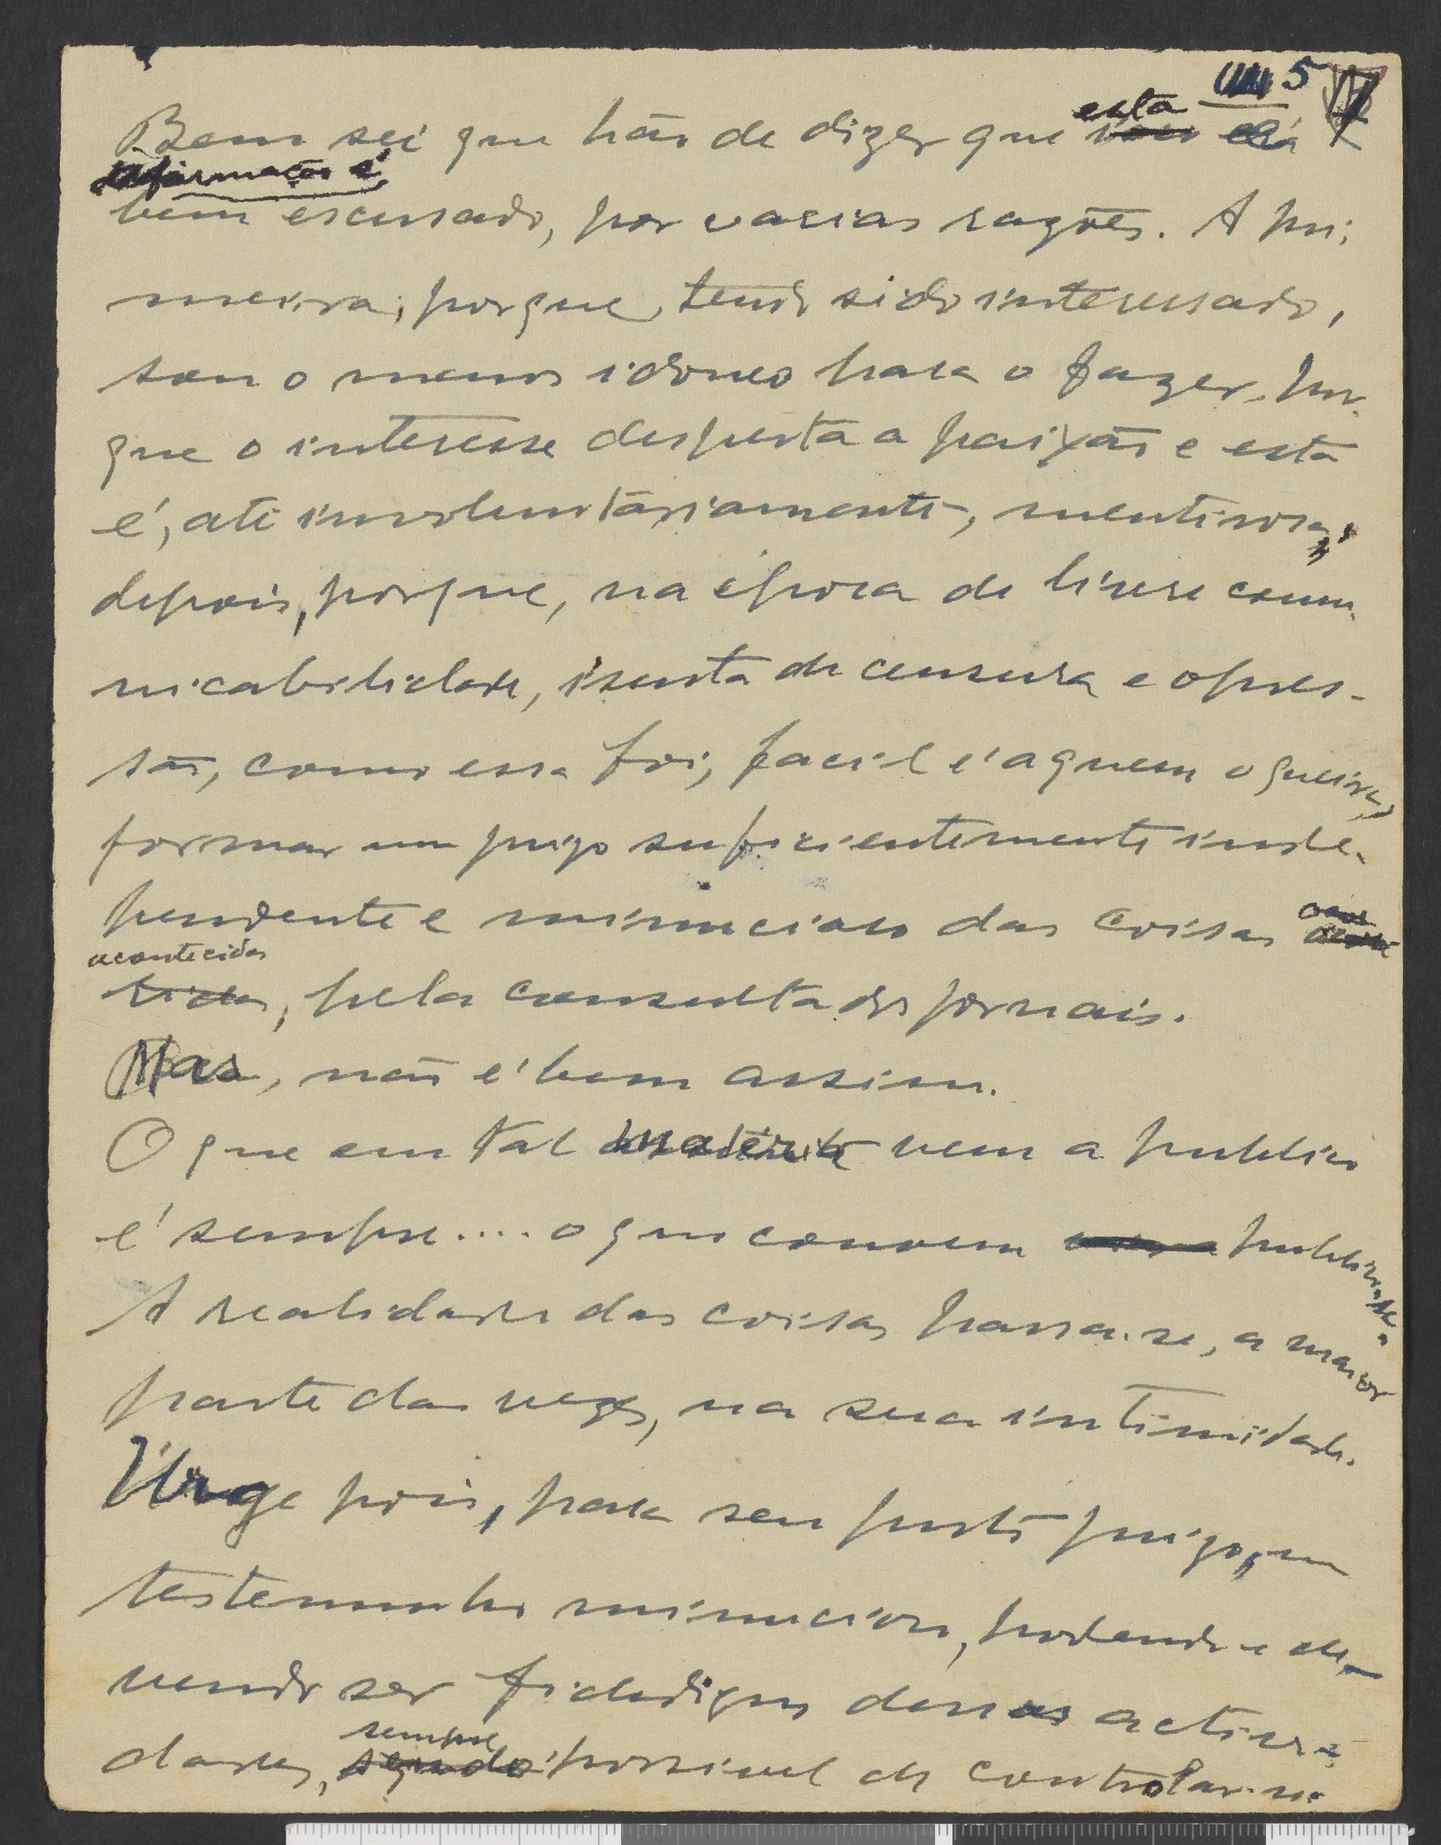 5
Bem sei que hão de dizer que esta
informação é
bem escusado, por varias razões. A pri-
meira, porque, tendo sido interessado,
sou o menos idoneo para o fazer, por-
que o interesse desperta a paixão e esta
é, até involuntáriamente, mentirosa,
depois, porque, na época de livre comu-
nicabilidade, isenta de censura e opres-
são, como essa foi, facil é a quem o queira,
formar um juizo suficientemente inde-
pendente e minucioso das coisas
acontecidas
, pela consulta dos jornais.
Mas, não é bem assim.
O que em tal matéria vem a publico
é sempre.... o que convem publicar-se.
A realidade das coisas passa-se, a maior
parte das vezes, na sua intimidade.
Urge pois, para seu justo juizo, um
testemunho minucioso, podendo e de-
vendo ser fidedigno dessas activi-
dades, sempre possivel de controlar-se